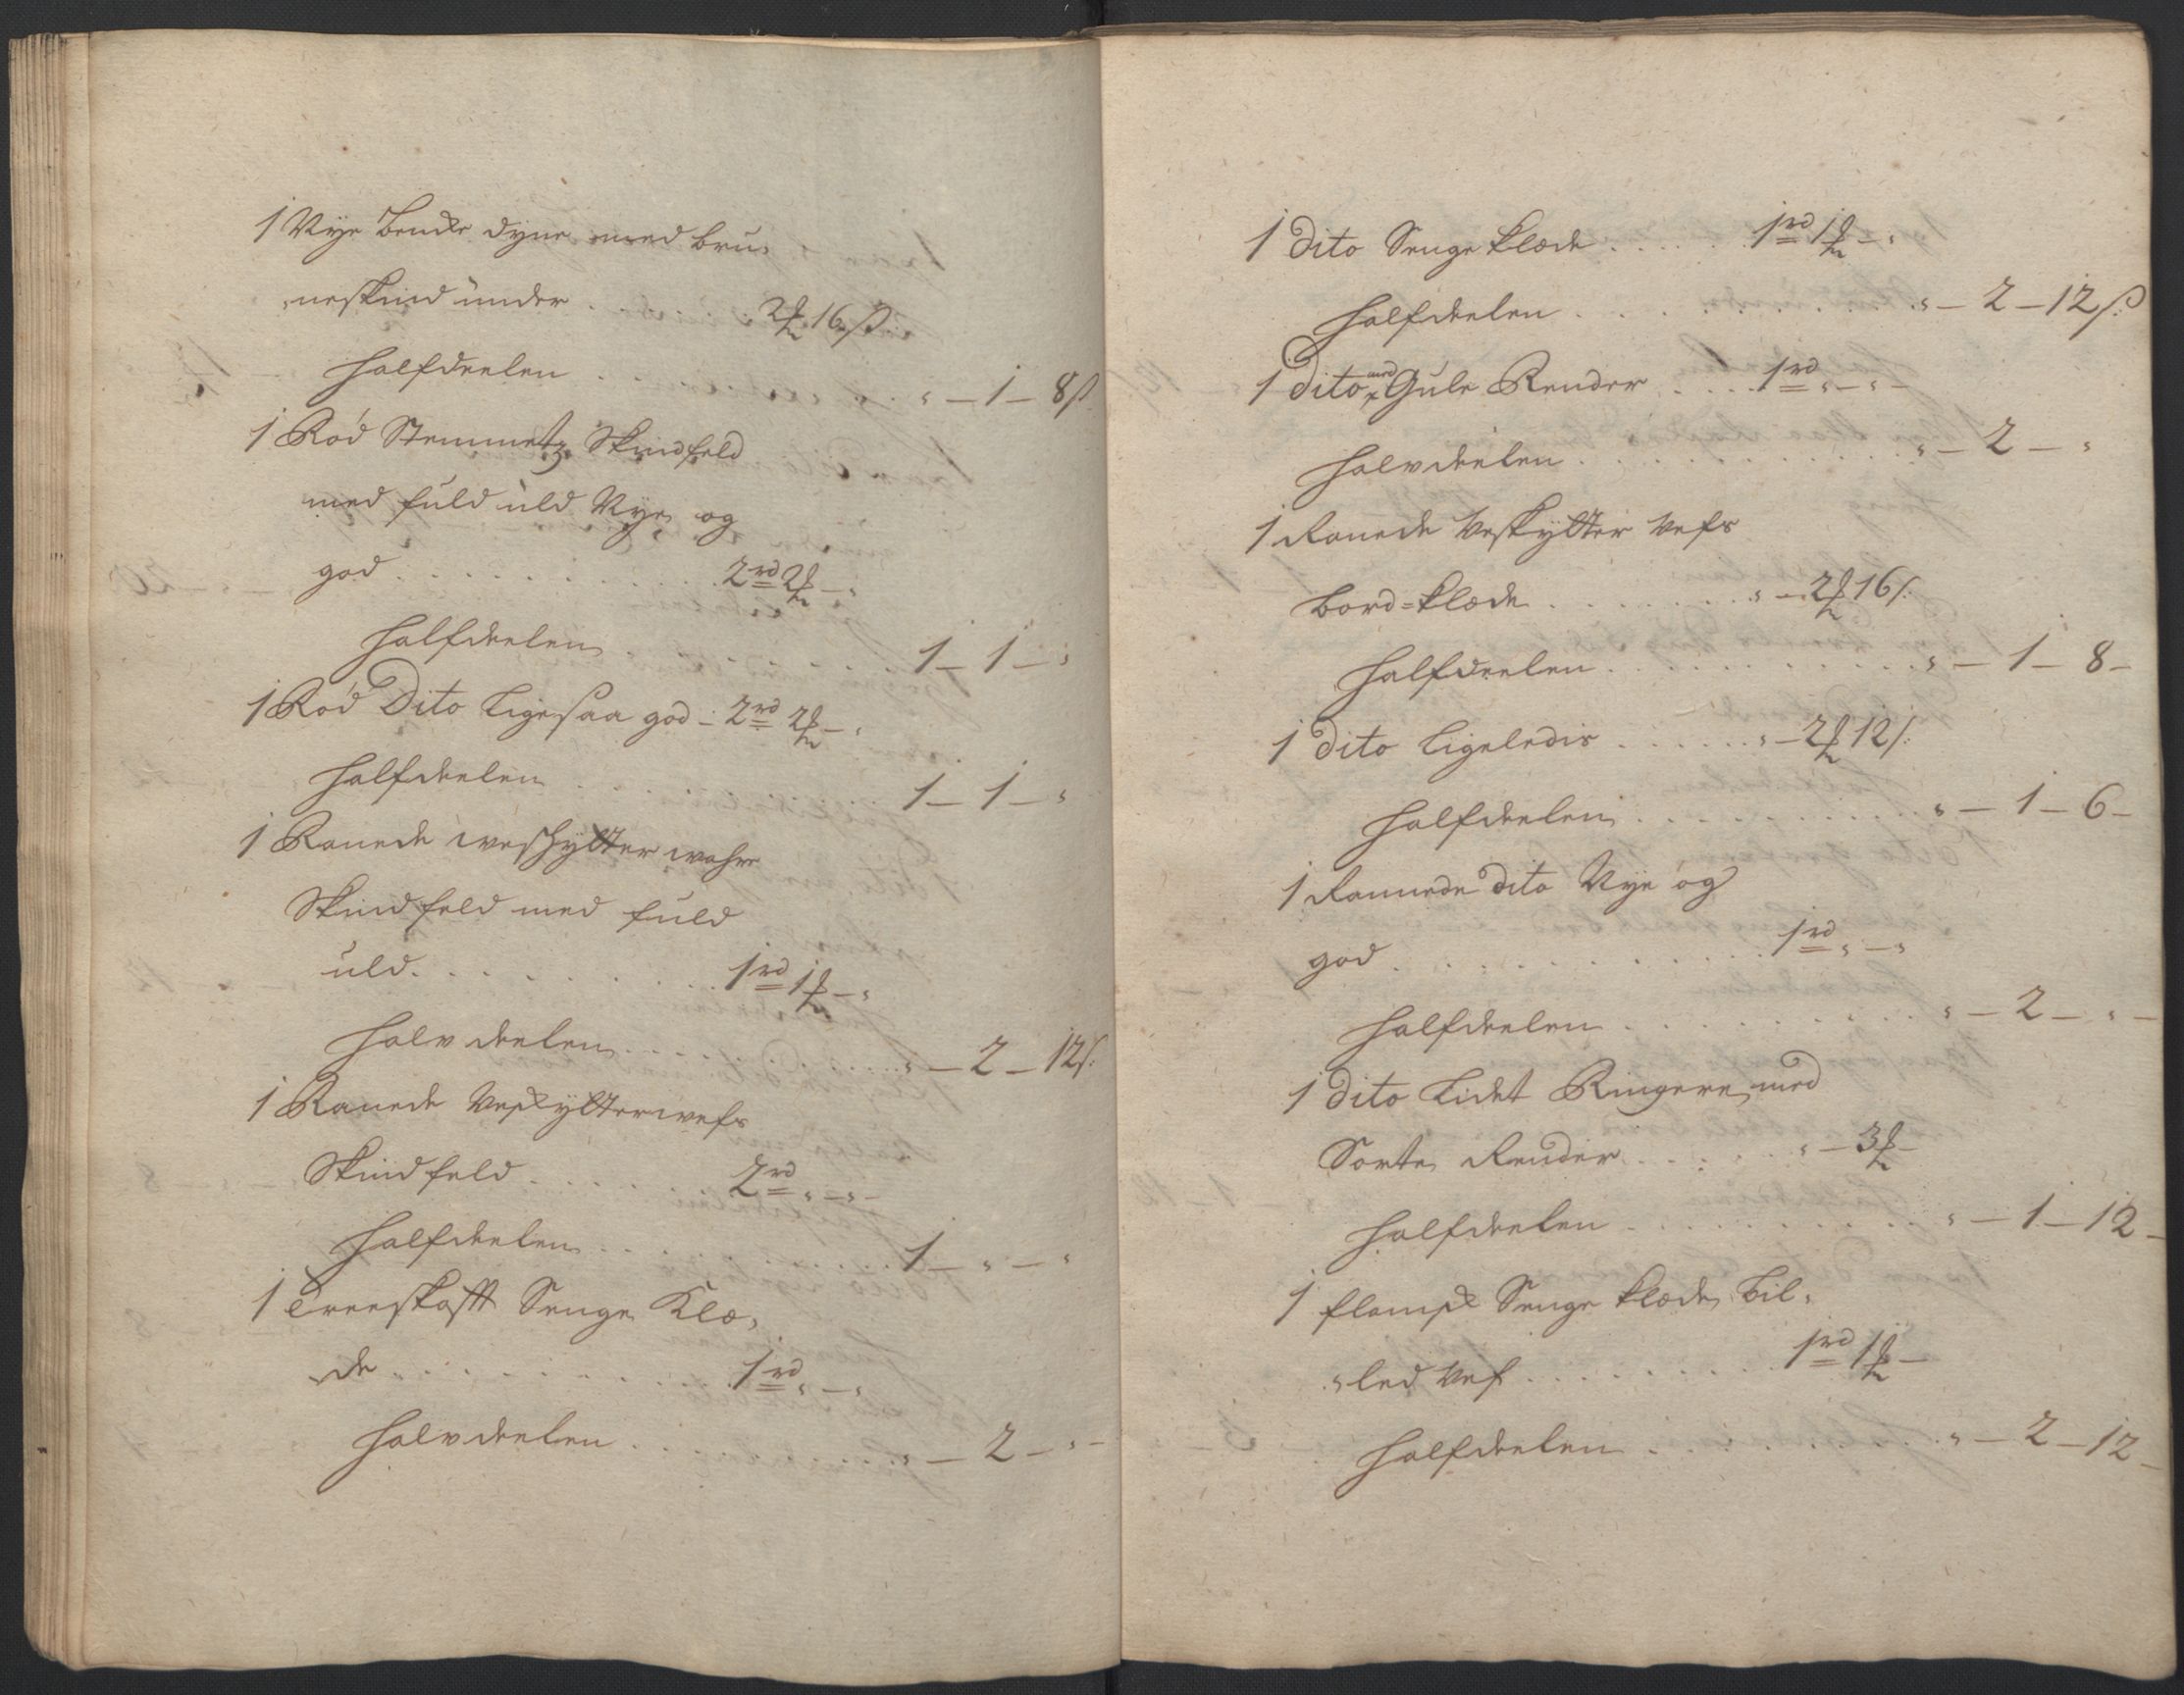 1 Nye bencke dyne med bru-
neskind under . . . 2 ₰ 16 ß
Halfdeelen . . . „ – 1 – 8 ß
1 Rød Stemmetz Skindfeld
med fuld uld Nye og
god . . . 2 rd 2 ₰ – „
Halfdeelen . . . 1 – 1 – „
1 Rød Dito ligesaa god – 2 rd 2 ₰ – „
Halfdeelen . . . 1 – 1 – „
1 Ranede
Skindfeld med fuld
uld . . . 1 rd 1 ₰ – „
Halvdeelen . . . „ – 2 – 12 ß
1 Ranede
Skindfeld . . . 2 rd „ – „ –
Halfdeelen . . . 1 – „ – „
1 Treeskafft Senge Klæ-
de . . . 1 rd „ – „
Halvdeelen . . . „ – 2 – „ –
1 Dito Senge klæde . . . 1 rd 1 ₰ – „
Halfdeelen . . . „ – 2 – 12 ß
1 Dito med Gule Render . . . 1 rd „ – „ –
Halvdeelen . . . „ – 2 – „
1 Ranede
Bord=klæde . . . „ – 2 ₰ 16 ß
Halfdeelen . . . „ – 1 – 8 –
1 Dito ligeledis . . . „ – 2 ₰ 12 ß
Halfdeelen . . . „ – 1 – 6 –
1 Rannede dito Nye og
god . . . 1 rd „ – „
Halfdeelen . . . „ – 2 – „ –
1 Dito Lidet Ringere med
Sorte Render . . . „ – 3 ₰ –
Halfdeelen . . . „ – 1 – 12 –
1 flamsk Senge klæde, Bil-
led Vef . . . 1 rd 1 ₰ –
Halfdeelen . . . „ – 2 – 12 –